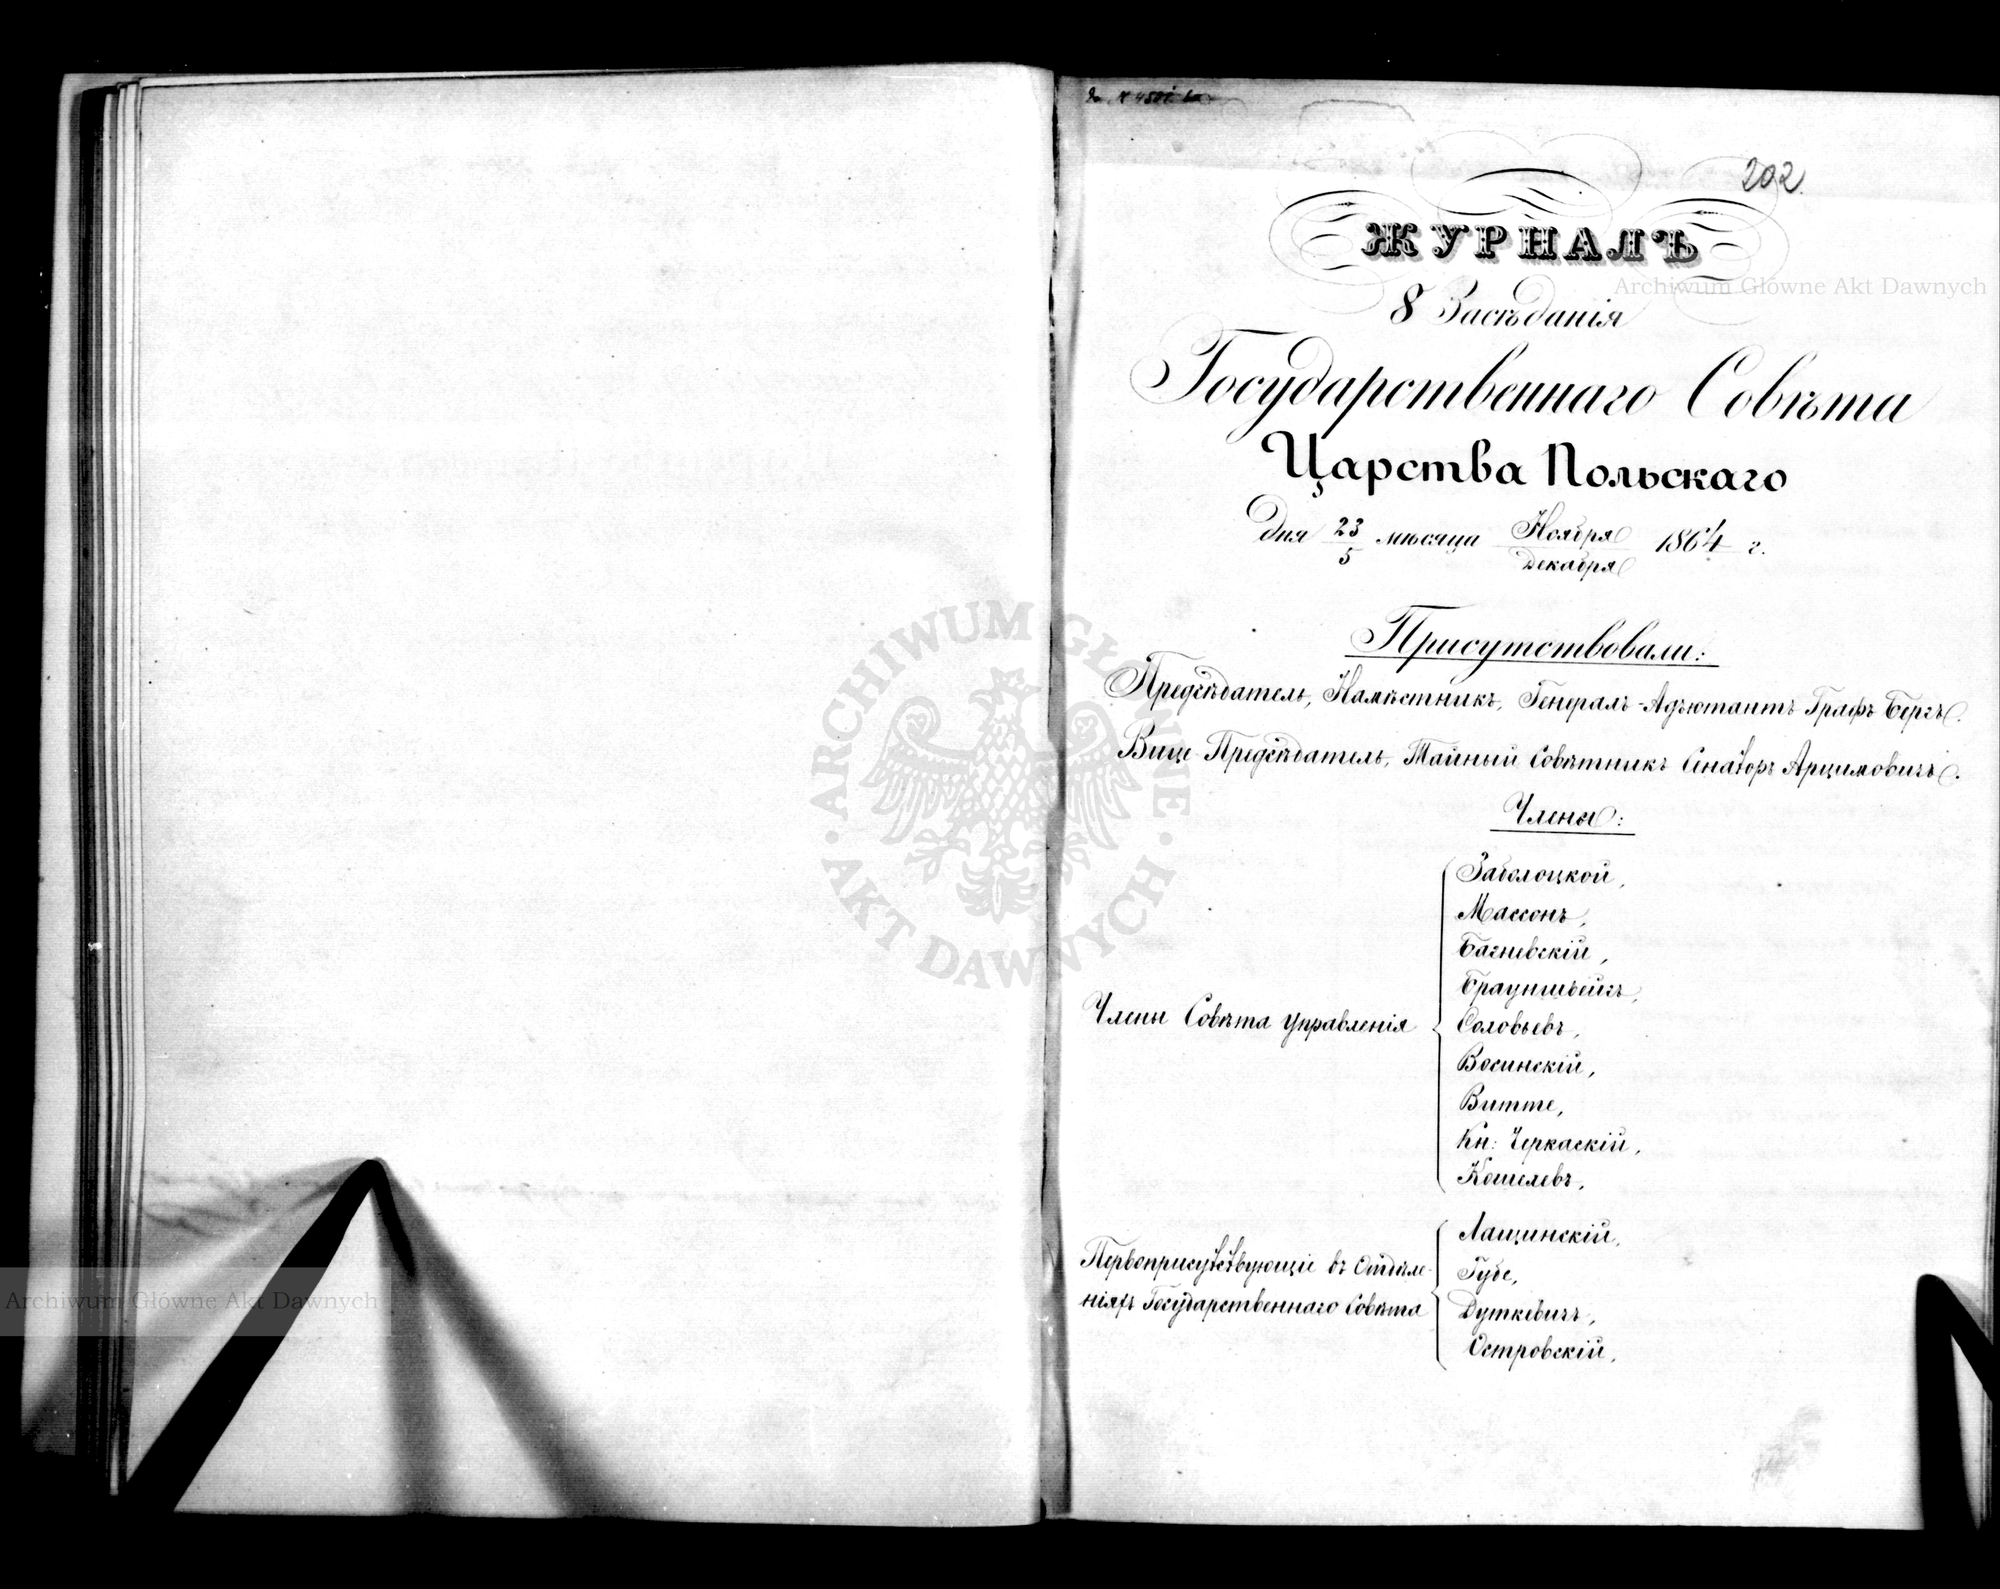 202.
ЖУРНАЛЪ
8 Засѣданія
Государственнаго Совѣта
Царства Польскаго
дня 23/5 мѣсяца Ноября/Декабря 1864 г.
Присутствовали:
Предсѣдатель, Намѣстникъ, Генералъ-Адъютантъ Графъ Бергъ.
Вице-Предсѣдатель, Тайный Совѣтникъ Сенаторъ Арцимовичъ.
Члены:
Члены Совѣта управленія
Заболоцкой,
Массонъ,
Багневскій,
Брауншвейгъ,
Соловьевъ,
Восинскій,
Витте,
Кн: Черкаскій,
Кошелевъ,
Первоприсутствующіе въ Отдѣле-
ніяхъ Государственнаго Совѣта
Лащинскій,
Губе,
Дуткевичъ,
Островскій,
Archiwum Główne Akt Dawnych
ARCHIWUM GŁÓWNE · AKT DAWNYCH ·
Archiwum Główne Akt Dawnych